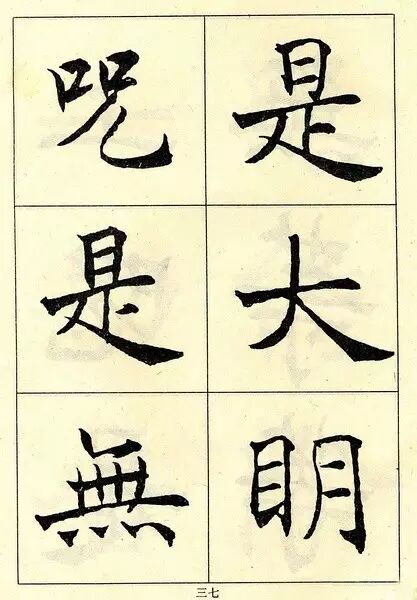 是大明
咒是無
三七